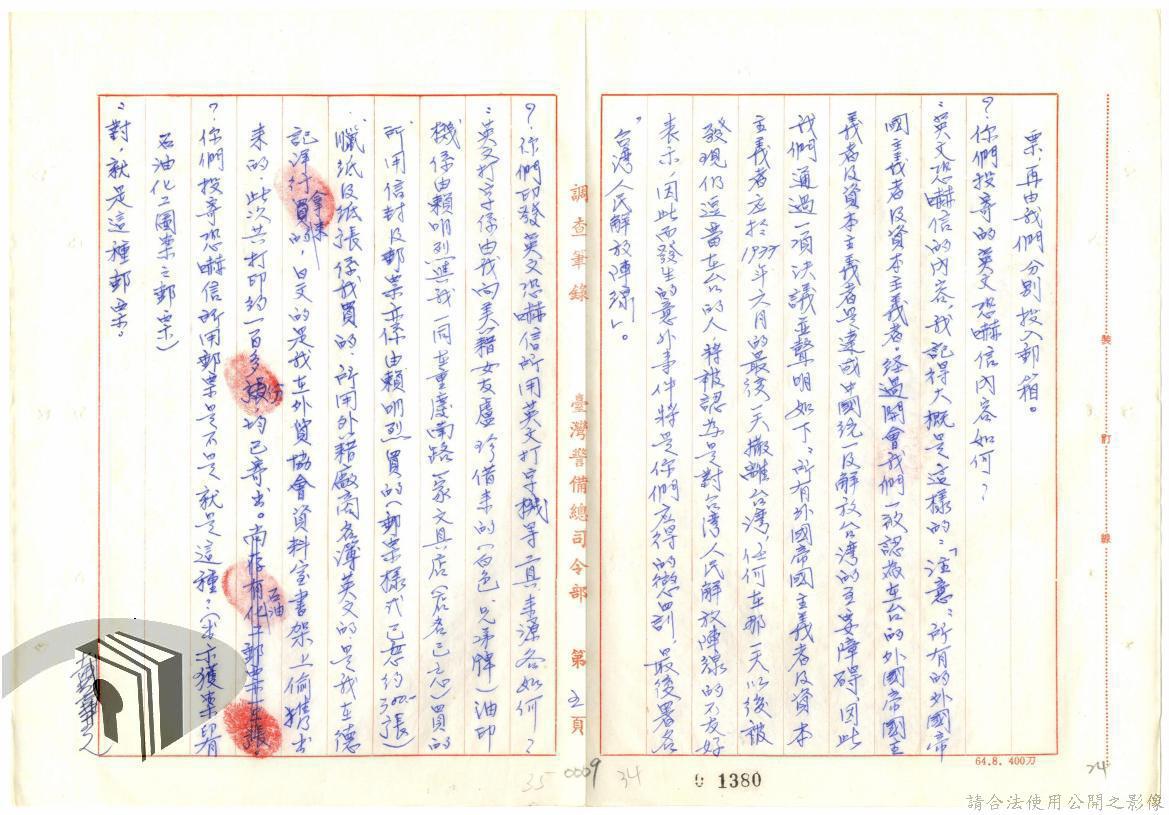 票，再由我們分別投入郵箱。
？你們投寄的英文恐嚇信內容如何？
：英文恐嚇信的內容，我記得大概是這樣的：「注意：所有的外國帝
國主義者及資本主義者，經過開會我們一致認為在台的外國帝國主
義者及資本主義者是達成中國統一及解放台灣的主要障碍，因此
我們通過一項決議並聲明如下：所有外國帝國主義者及資本
主義者應於1977年六月的最後一天撤離台灣，任何在那一天以後被
發現仍逗留在台的人，將被認為是對台灣人民解放陣線的不友好
表示，因此而發生的意外事件將是你們應得的懲罰，最後署名
「台灣人民解放陣線」。
裝
訂
線
64.8. 400刀
24
調查筆錄　臺灣警備總司令部　第五頁
？你們印發英文恐嚇信所用英文打字機等工具來源各如何？
：英文打字係由我向美籍女友盧珍借來的（白色兄弟牌）油印
機係由賴明烈與我一同在重慶南路一家文具店（店名已忘）買的
所用信封及郵票亦係由賴明烈買的（郵票樣式已忘約300張）
臘紙及紙張係我買的，所用外籍廠商名簿英文的是我在德
記洋行拿來的，日文的是我在外貿協會資料室書架上偷携出
來的此次共打印約一百多份，均已寄出。尚存有石油化工郵票一張。
？你們投寄恐嚇信所用郵票是不是就是這種？（出示獲案留有
石油化工圖案之郵票）
：對，就是這種郵票。
35
0009
34
01380
請合法使用公開之影像